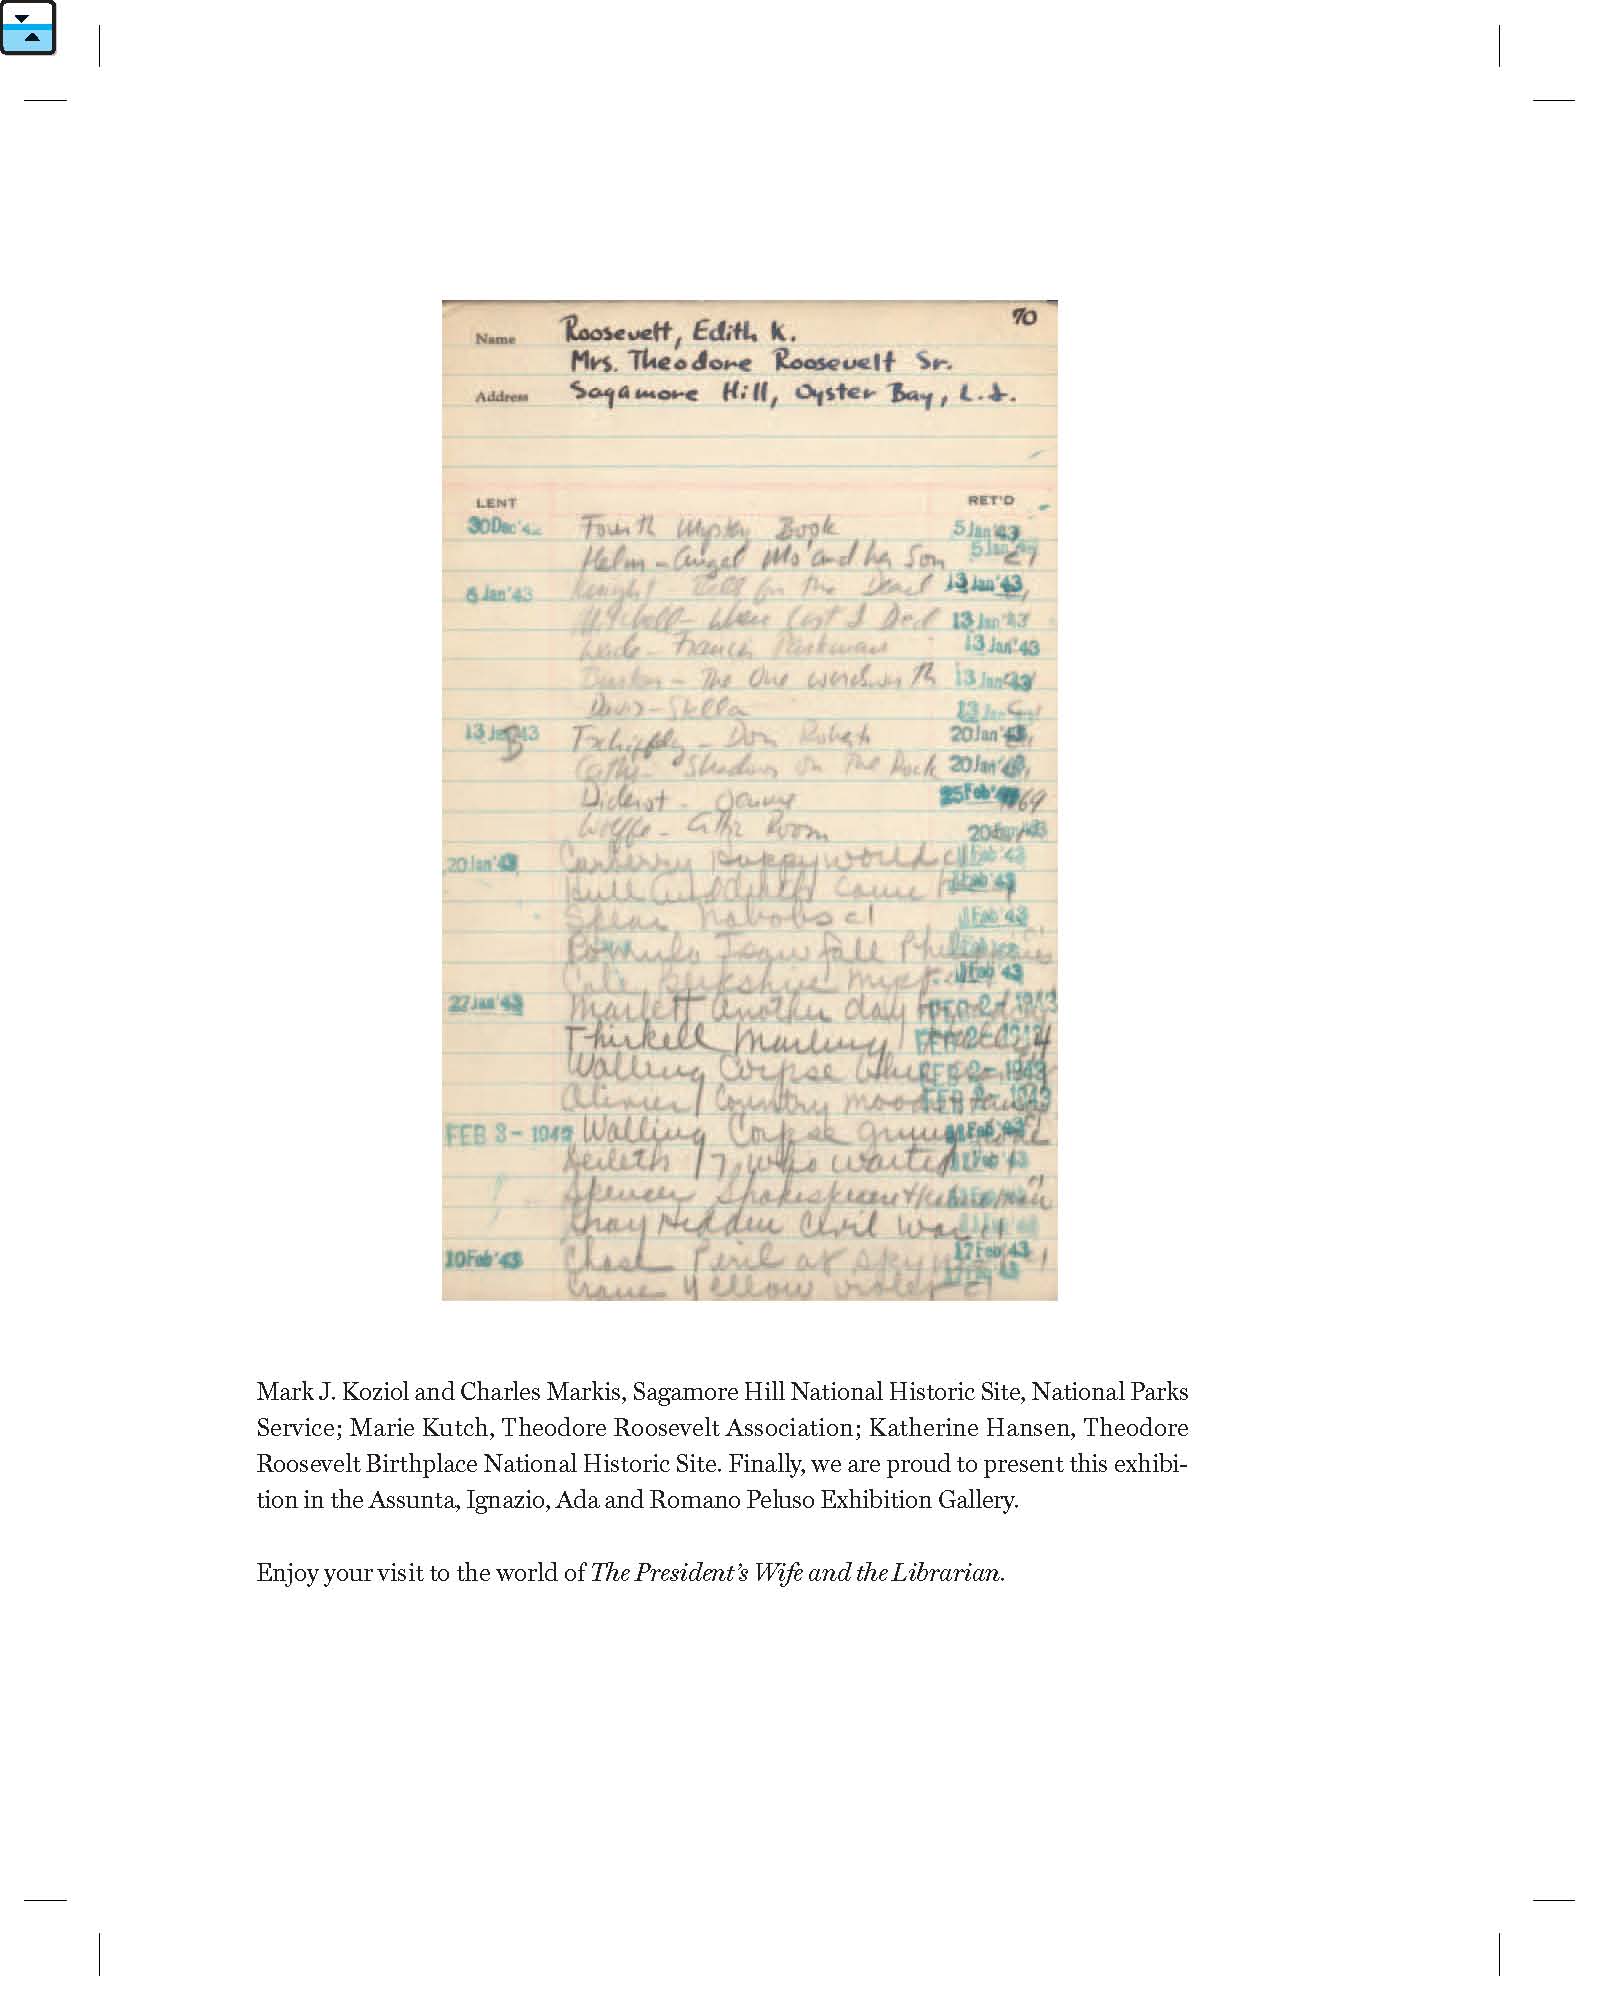 70
Name Roosevelt, Edith K.
Mrs. Theodore Roosevelt Sr.
Address Sagamore Hill, Oyster Bay, L.I.
LENT RET'D
30 Dec '42 Fourth Mystery Book 5 Jan '43
Helm - Angel Mo' and her Son 5 Jan
6 Jan '43 Knight - Bell for the Dead 13 Jan '43
Mitchell - Where Lost I Died 13 Jan '43
Wade - Francis Parkman 13 Jan '43
The One 13 Jan '43
Davis - Stella 13 Jan
13 Jan '43 Tschiffely - Don Roberto 20 Jan '43
Cather - Shadows on the Rock 20 Jan '43
Diderot - 25 Feb
Wolffe - Attic Room 20
20 Jan '43 Carberry puppy world cl Feb '43
came Feb '43
Spear Nabobs cl 1 Feb '43
Romulo I saw fall Philippines
Cole Berkshire myst. 1 Feb '43
27 Jan '43 Marlett Another day FEB 2 - 1943
Thirkell Marling FEB 2 - 1943
Walling Corpse FEB 2 - 1943
Olivier Country moods FEB 2 - 1943
FEB 3 - 1943 Walling Corpse Feb '43
17 who waited 11 Feb '43
Spencer Shakespeare
Gray Hidden Civil War cl
10 Feb '43 Chase Peril at 17 Feb '43
Crane Yellow violet cl
Mark J. Koziol and Charles Markis, Sagamore Hill National Historic Site, National Parks
Service; Marie Kutch, Theodore Roosevelt Association; Katherine Hansen, Theodore
Roosevelt Birthplace National Historic Site. Finally, we are proud to present this exhibi-
tion in the Assunta, Ignazio, Ada and Romano Peluso Exhibition Gallery.
Enjoy your visit to the world of The President's Wife and the Librarian.